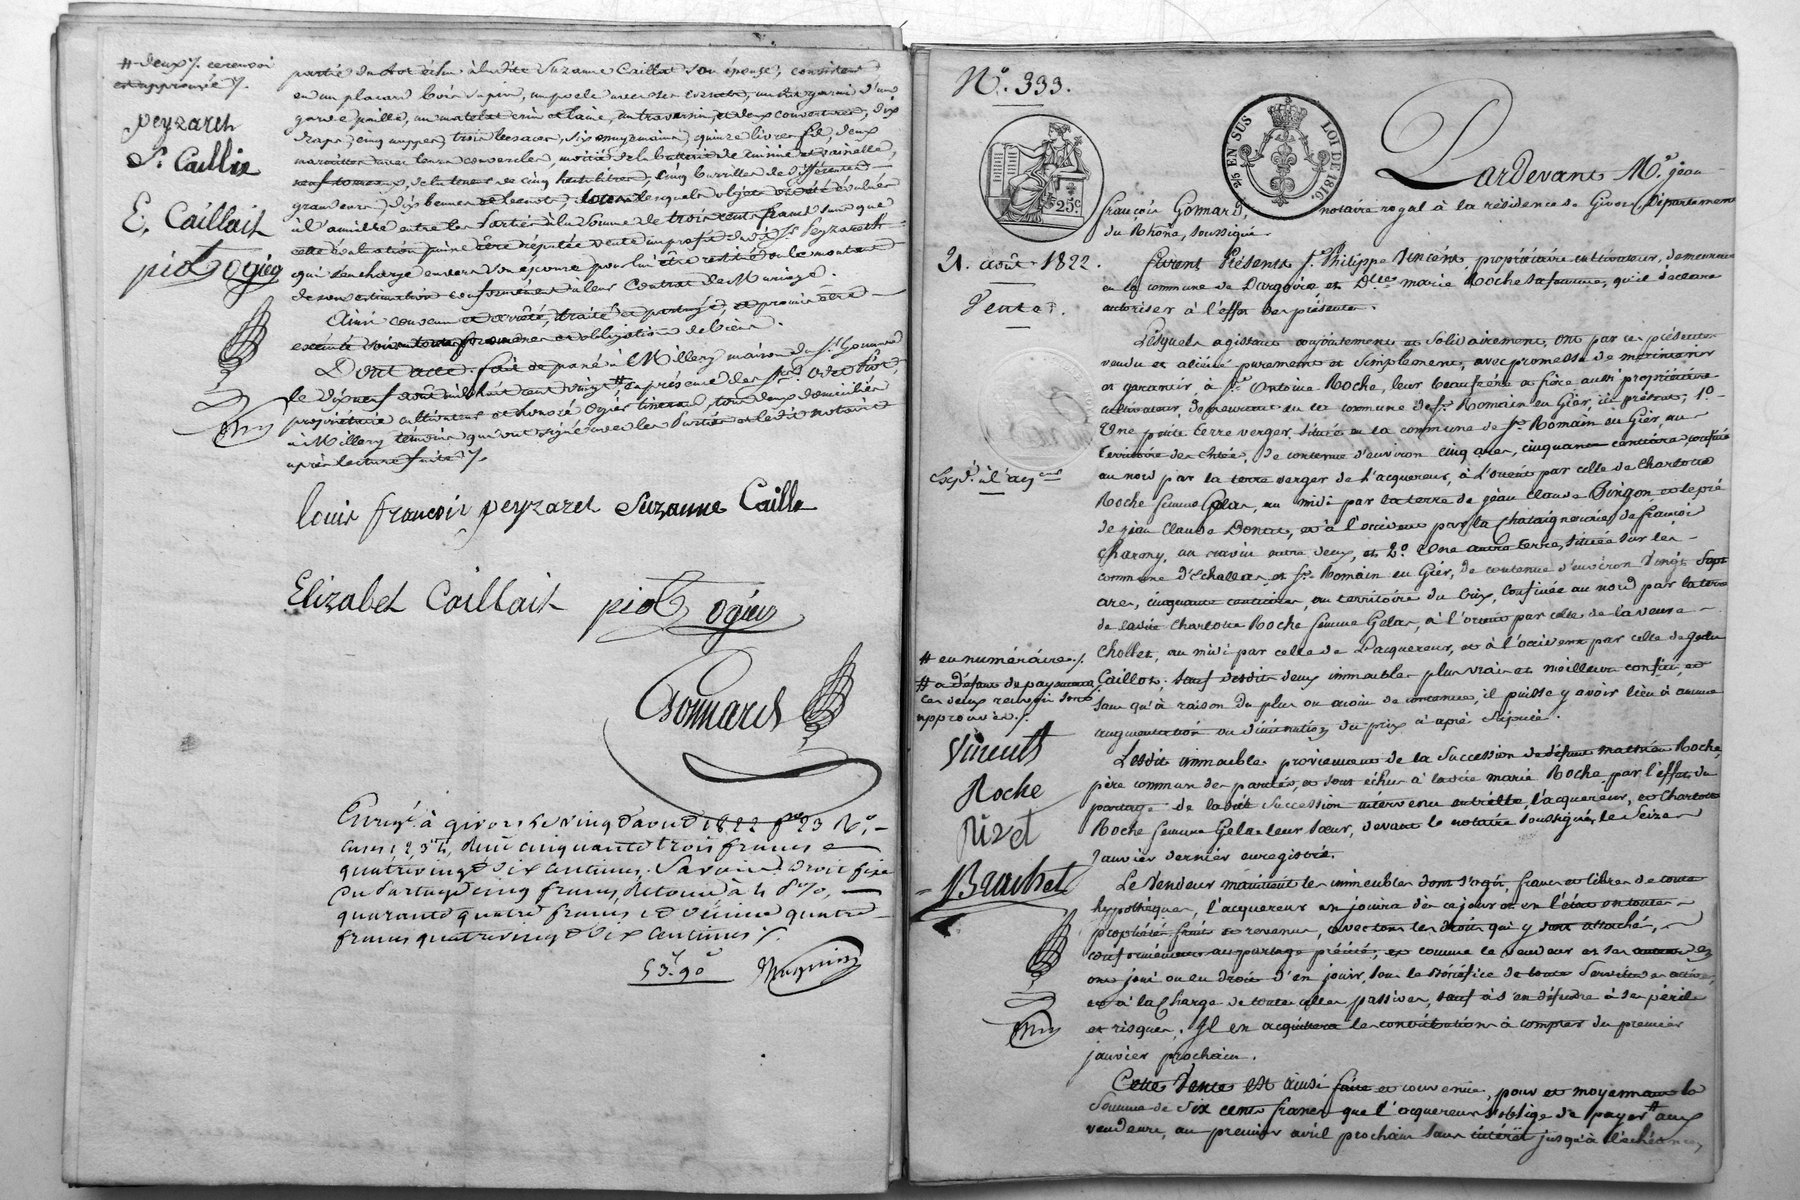 # deux %. ce renvoi
est approuvé %.
peyzaret
S. Caille
E, Caillait
piot ogier
partie du lot échu à ladite Suzanne Caillat son épouse, consistant
en un placard bois sapin, un poele avec ses cornets, un lit garni d'une
garde paille, un matelat crin et laine, un traversin, et deux couvertures, dix
draps, cinq nappes, trois besaces, six essuyemains, quinze livres fil, deux
marmites avec leurs couvercles, moitié de la batterie de cuisine et vaisselle,
neuf tonneaux, de la tenue de cinq hectolitres, cinq barrilles de différentes
grandeurs, dix bennes et le cuvet; tous lesquels objets ont été évalués
à l'amiable entre les Parties à la somme de trois cents francs sans que
cette évaluation puisse être réputée vente au profit dudit Sr. Peyzaret
qui s'en charge envers son épouse pour lui être restitué ou le montant
de son estimation conformément à leur Contrat de Mariage.
Ainsi convenu et arrêté, traité et partagé, et promis être
exécuté sous toutes promesses et obligations de biens.
Dont acte. fait et passé à Millery maison du Sr. Gonnard
le dix neuf août mil huit cent vingt # en présence des Srs.
propriétaire cultivateur et honoré Ogier tisserand, tous deux domiciliés
à Millery témoins qui ont signé avec les Parties et ledit notaire
après lecture faite %.
louis françois peyzaret Suzanne Caille
Elizabet Caillait piot ogier
Gonnard
Enregé. à givors le vingt aout 1822 fo. 23 Ro.
cases 1, 2, 3 et 4, reçu cinquante trois francs
quatrevingt dix centimes, Savoir: Droit fixe
du Partage cinq francs, retour à 4 p%,
quarante quatre francs et décime quatre
francs quatrevingt dix centimes %.
53f. 90c
No. 333.
25c.
2/5 EN SUS
LOI DE 1816.
Pardevant Me. jean
françois Gonnard, notaire royal à la résidence de Givors, Département
du Rhône, soussigné.
21. août 1822.
Vente.
Expd. à l'acqreur
# en numéraire %.
# à défaut de payement
ces deux renvois sont
approuvés %.
Vincent
Roche
Rivet
Brachet
Furent Présents Sr. Philippe Vincent, propriétaire cultivateur, demeurant
en la commune de Dargoire, et Delle. marie Roche sa femme, qu'il déclare
autoriser à l'effet des présentes.
Lesquels agissant conjointement et solidairement, ont par ces présentes
vendu et aliéné purement et simplement, avec promesse de maintenir
et garantir, à Sr. Antoine Roche, leur beaufrère et frère aussi propriétaire
cultivateur, demeurant en la commune de St. Romain en Gier, ici présent, 1o.
Une petite terre verger, située en la commune de St. Romain en Gier, au
territoire des de contenue d'environ cinq ares, cinquante centiares confinée
au nord par la terre verger de l'acquereur, à l'orient par celle de Charlotte
Roche femme Gelas, au midi par la terre de jean claude Bingon et le pré
de jean Claude Donat, et à l'occident par la chataigneraie de françois
Charony, un ravin entre deux, et 2o. Une autre terre, située sur les
communes d'Echallas et St. Romain en Gier, de contenue d'environ vingt sept
ares, cinquante centiares, au territoire du Crix, confinée au nord par la terre
de ladite Charlotte Roche femme Gelas, à l'orient par celle de la veuve
Chollet, au midi par celle de l'acquereur, et à l'occident par celle de
Caillot; sauf desdits deux immeubles plus vrais et meilleurs confins, et
sans qu'à raison du plus ou moins de contenue, il puisse y avoir lieu à aucune
augmentation ou diminution du prix ci après stipulé.
Lesdits immeubles proviennent de la succession de défunt mathieu Roche,
père commun des parties, et sont échus à ladite marie Roche par l'effet du
partage de ladite succession intervenu entr'elle, l'acquereur, et Charlotte
Roche femme Gelas leur sœur, devant le notaire soussigné, le seize
janvier dernier enregistré.
Le Vendeur maintient les immeubles dont s'agit, francs et libres de toute
hypothèque, l'acquereur en jouira dès ce jour et en l'état en toute
propriété fruits et revenus, avec tous les droits qui y sont attachés,
conformément au partage précité, et comme le vendeur et ses auteurs en
ont joui ou eu droit d'en jouir, sous le bénéfice de toutes servitudes actives,
et à la charge de toutes celles passives, sauf à s'en défendre à ses périls
et risques. Il en acquittera les contributions à compter du premier
janvier prochain.
Cette Vente est ainsi faite et convenue, pour et moyennant la
somme de six cents francs que l'acquereur s'oblige de payer # aux
vendeurs, au premier avril prochain sans intérêt jusqu'à l'échéance,